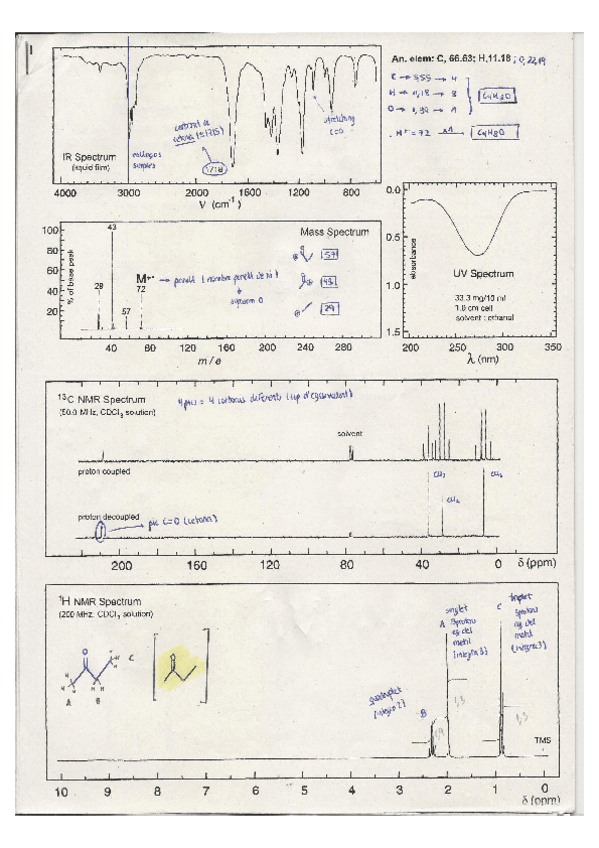 1
An. elem: C, 66.63; H,11.18 ; O, 22,19
C → 5,55 → 4
H → 11,18 → 8
O → 1,39 → 1
C4H8O
M+ = 72
C4H8O
IR Spectrum
(liquid film)
carbonil de
cetona (≈1715)
1718
enllaços
simples
stretching
4000 3000 2000 1600 1200 800
V (cm⁻¹)
Mass Spectrum
% of base peak
100
80
60
40
20
43
29
57
72
M+•
57
43
29
40 80 120 160 200 240 280
m / e
UV Spectrum
33.3 mg/10 ml
1.0 cm cell
solvent : ethanol
absorbance
0.0
0.5
1.0
1.5
200 250 300 350
λ (nm)
13C NMR Spectrum
(50.0 MHz, CDCl3 solution)
4 pics = 4 carbonis diferents (cap d'equivalent)
solvent
proton coupled
proton decoupled
pic C=O (cetona)
CH3
CH2
CH3
200 160 120 80 40 0 δ (ppm)
1H NMR Spectrum
(200 MHz, CDCl3 solution)
A
B
C
quadruplet
(integra 2)
B
singlet
A
3 protons
del
metil
(integra 3)
triplet
C
3 protons
del
metil
(integra 3)
TMS
10 9 8 7 6 5 4 3 2 1 0
δ (ppm)